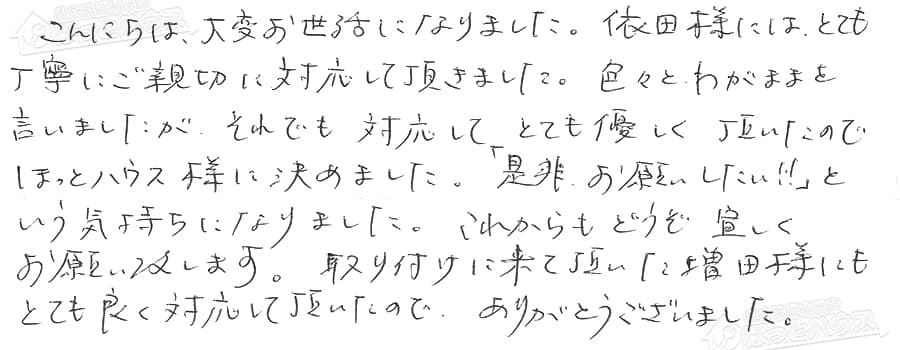 こんにちは、大変お世話になりました。依田様には、とても
丁寧にご親切に対応して頂きました。色々とわがままを
言いましたが、それでも対応して、とても優しく頂いたので
ほっとハウス様に決めました。「是非、お願いしたい!!」と
いう気持ちになりました。これからもどうぞ宜しく
お願い致します。取り付けに来て頂いた増田様にも
とても良く対応して頂いたので、ありがとうございました。